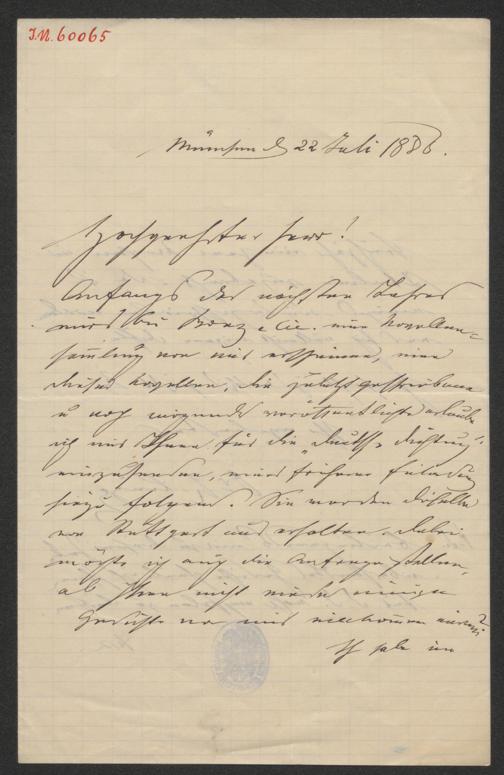 I.N. 60065
München d 22 Juli 1886.
Hochgeehrter Herr!
Anfangs des nächsten Jahres
wird bei Bonz & Cie. eine Novellen-
sammlung von mir erscheinen, eine
dieser Novellen, die zuletzt geschriebene
u noch nirgends veröffentlichte erlaube
ich mir Ihnen für die "Deutsche Dichtung"
einzusenden, einer früheren Einladung
hiezu folgend. Sie werden dieselbe
von Stuttgart aus erhalten. Dabei
möchte ich auch die Anfrage stellen,
ob Ihnen nicht einige
Gedichte von mir willkommen wären?
Ich habe im